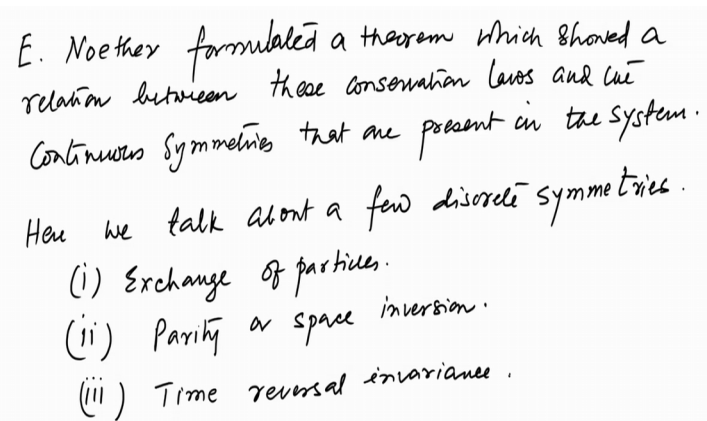 E. Noether formulated a theorem which showed a
relation between these conservation laws and the
Continuous Symmetries that are present in the system.
Here we talk about a few discrete symmetries.
(i) Exchange of particles.
(ii) Parity or space inversion.
(iii) Time reversal invariance.